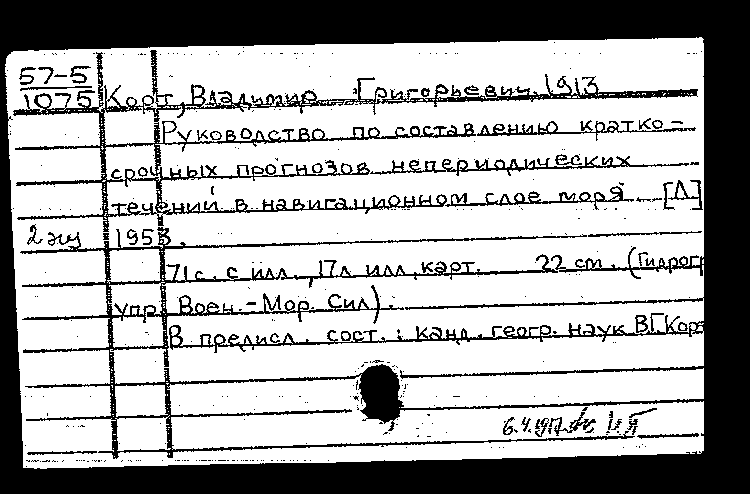 57-5
1075 Корт, Владимир Григорьевич, 1913
Руководство по составлению кратко-
срочных прогнозов непериодических
течений в навигационном слое моря. [Л.]
2 экз 1953.
71с. с илл., 17л илл, карт. 22 cm. (Гидрогр
упр. Воен.-Мор. Сил).
В предисл. сост.: канд. геогр. наук В.Г. Корт